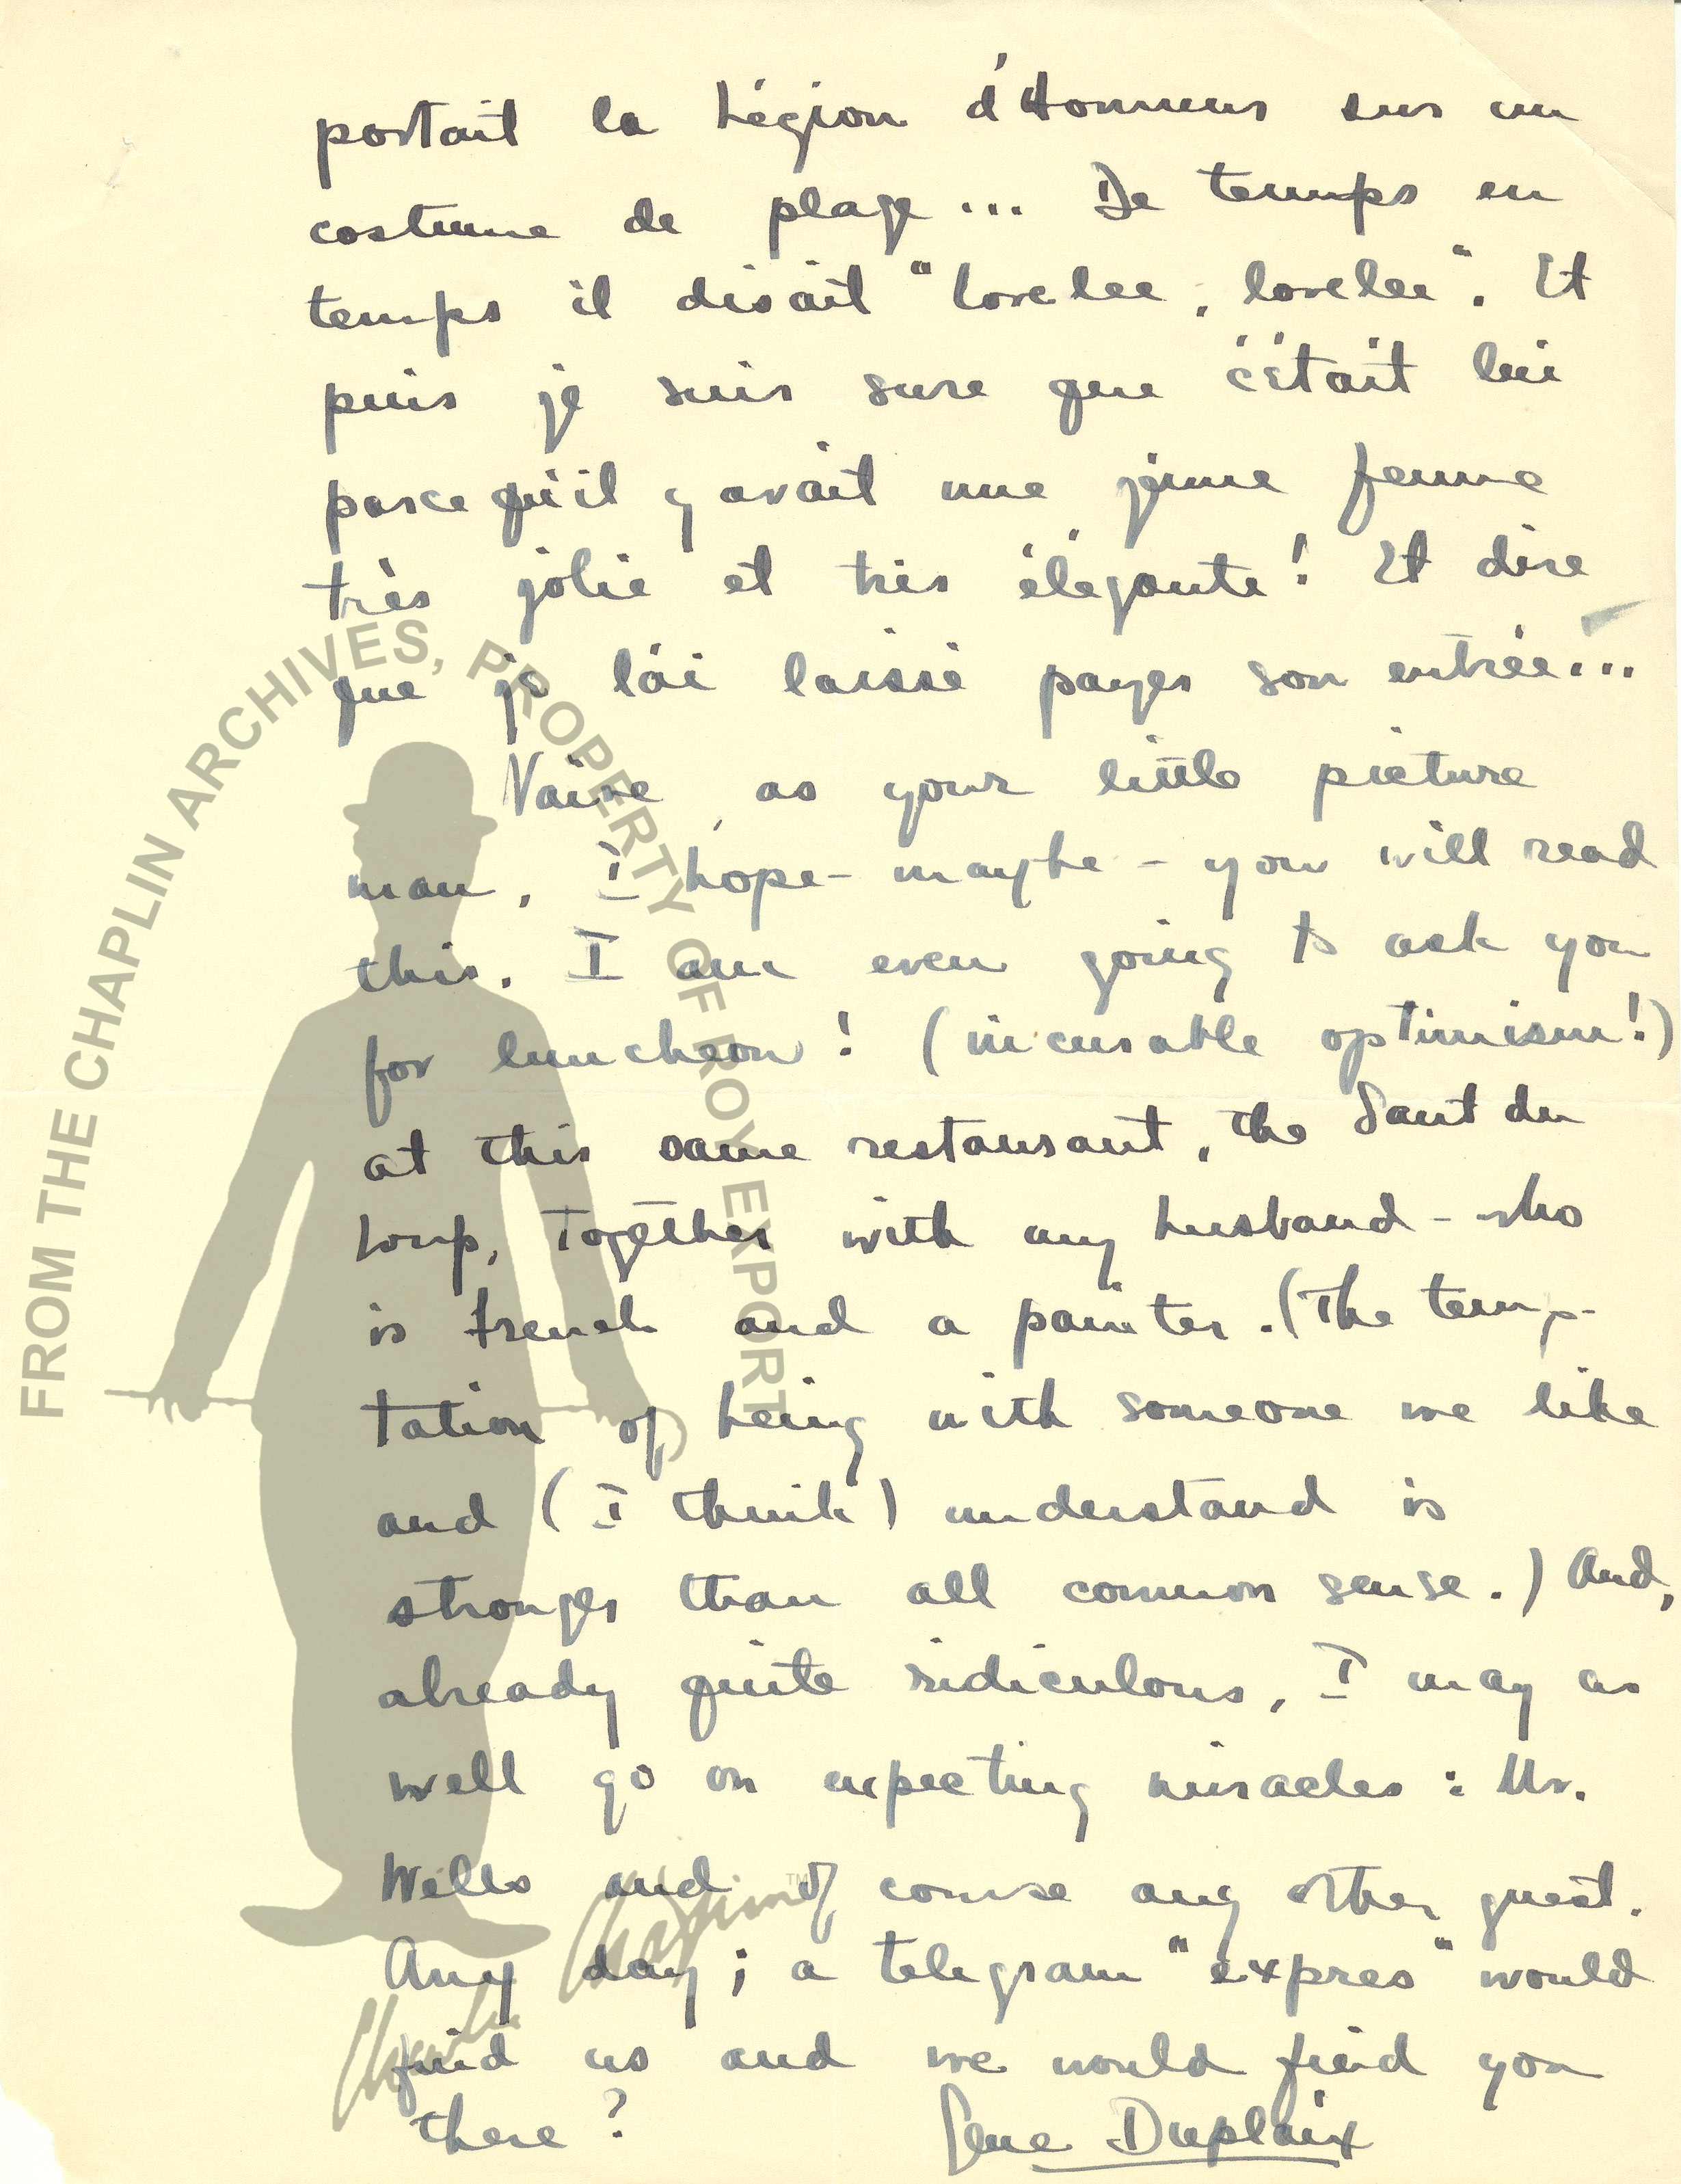 portait la Légion d'Honneur sur un
costume de plage... De temps en
temps il disait "lovelee, lovelee". Et
puis je suis sure que c'était lui
parce qu'il y avait une jeune femme
très jolie et très élégante! Et dire
que je l'ai laissé payer son entrée...
Naive, as your little picture
man, I hope - maybe - you will read
this. I am even going to ask you
for luncheon! (incurable optimism!)
at this same restaurant, the Saut du
Loup, together with my husband - who
is French and a painter. (The temp-
tation of being with someone we like
and (I think) understand is
stronger than all common sense.) And,
already quite ridiculous, I may as
well go on expecting miracles: Mr.
Wells and of course any other guest.
Any day; a telegram "expres" would
find us and we would find you
there?
Gene Duplaix
FROM THE CHAPLIN ARCHIVES, PROPERTY OF ROY EXPORT
Charlie Chaplin TM